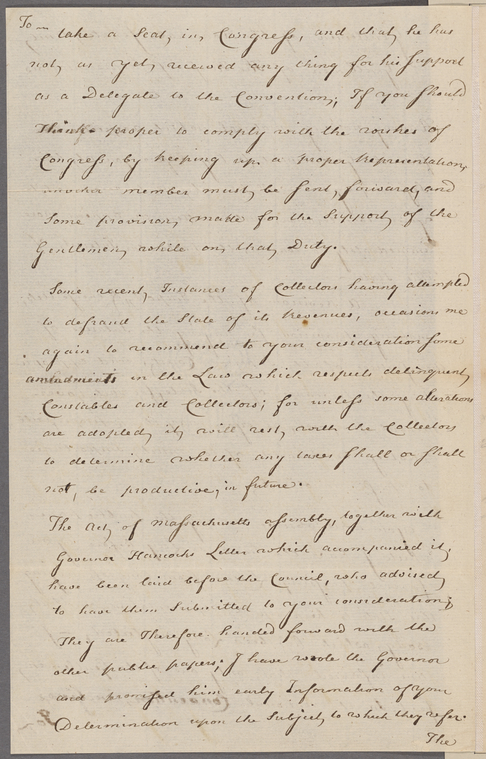 To —
take a Seat, in, Congress, and that, he has
not, as yet, received any thing for his Support
as a Delegate to the Convention,; If you Should
Think proper to comply with the wishes of
Congress, by keeping up a proper Representation,
another member must, be Sent, forward, and
Some provision, made for the Support, of the
Gentlemen, while on, that, Duty.
Some recent, Instances of Collectors having attempted
to defraud the State of its Revenues, occasions me
again to recommend to your consideration Some
amendments in the Law which respects delinquent,
Constables and Collectors; for unless some alterations
are adopted, it, will rest, with the Collectors
to determine whether any taxes Shall or Shall
not, be productive, in future.
The Act, of Massachusetts assembly, together with
Governor Hancocks Letter which accompanied it,
have been laid before the Council, who advised
to have them Submitted to your consideration;
They are Therefore handed forward with the
other public papers; I have wrote the Governor
and promised him early Information of your
Determination upon the Subject, to which they refer.
The